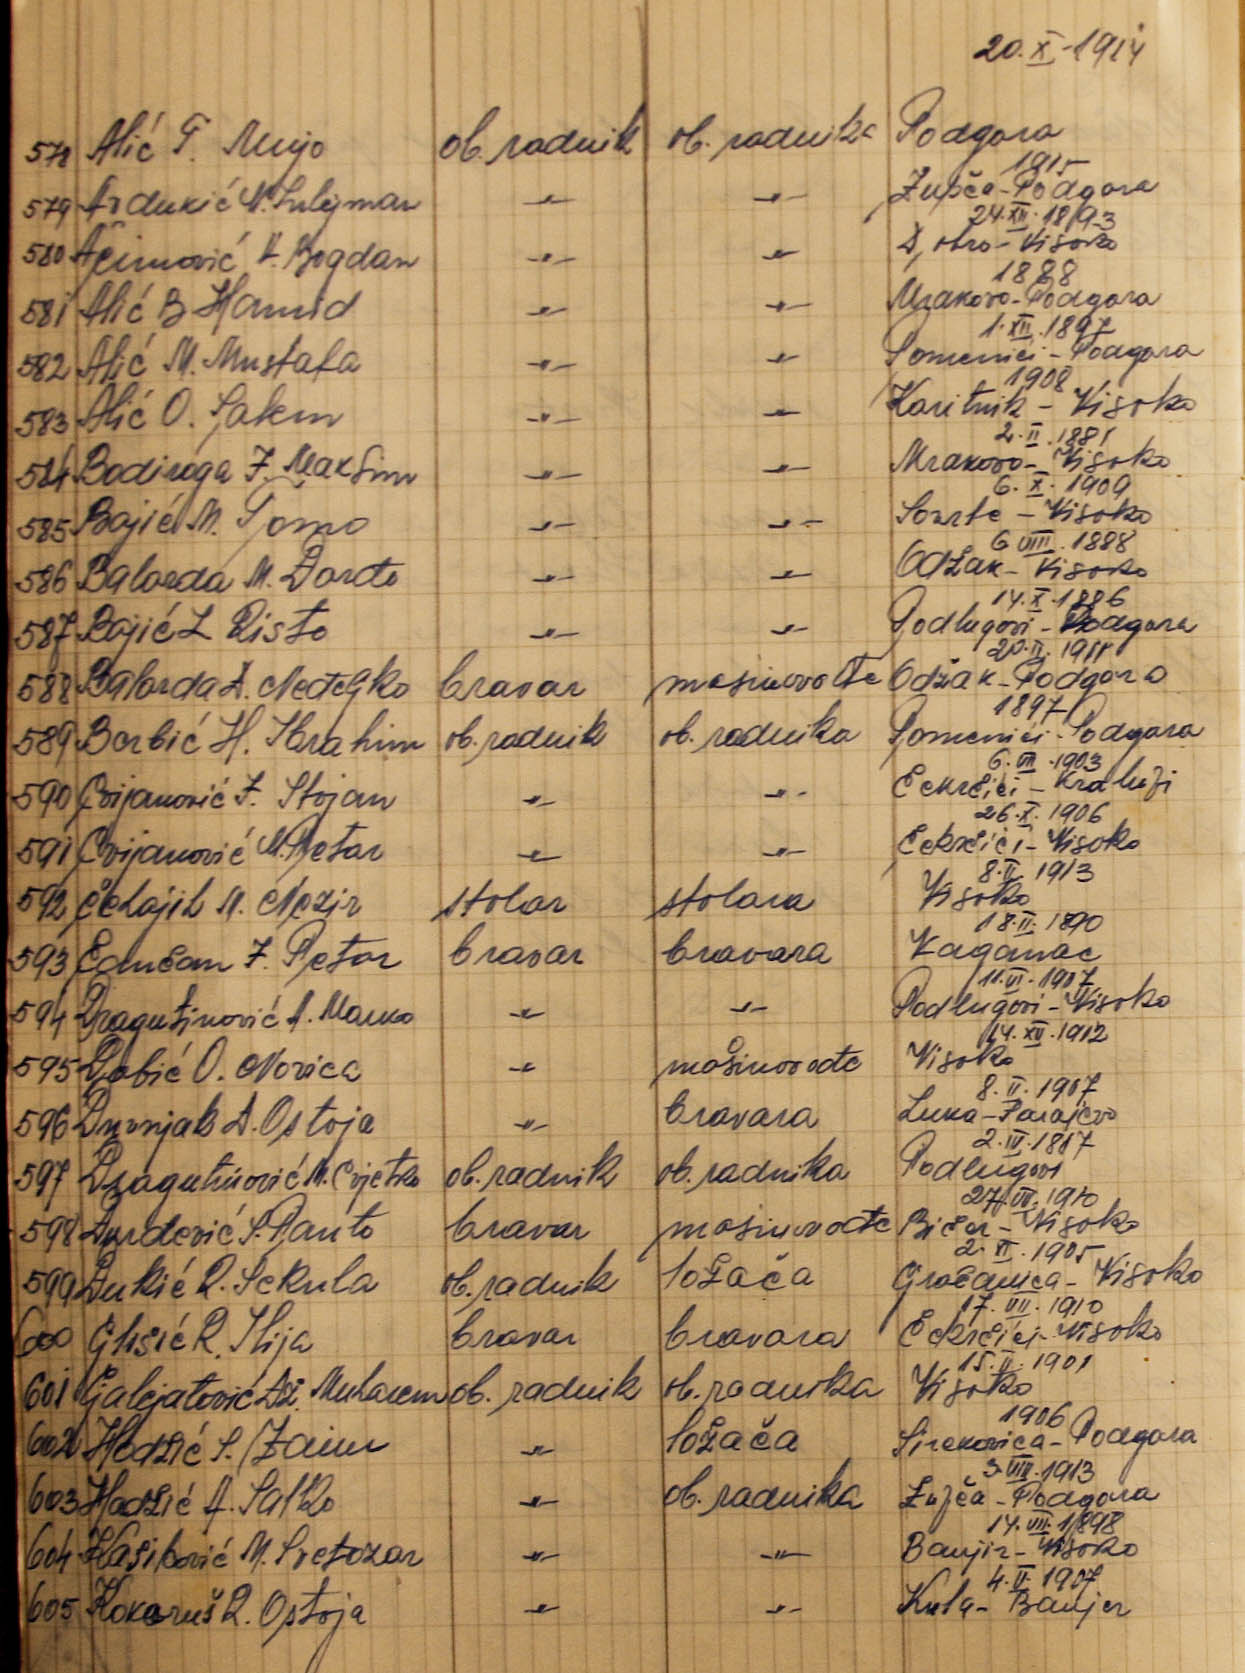 20.X.1914
578 Alić T. Mujo ob. radnik ob. radnika Podgora
1915
579 Avdukić N. Sulejman -"- -"- Župča-Podgora
24.XII.1893
580 Aćimović V. Bogdan -"- -"- Visoko
1888
581 Alić B Hamid -"- -"- Mrakovo-Podgora
1.XII.1897
582 Alić M. Mustafa -"- -"- Podgora
1908
583 Alić O. Salem -"- -"- Koritnik - Visoko
2.II.1881
584 Bodiroga J. Maksim -"- -"- Mrakovo-Visoko
6.X.1909
585 Bojić M. Tomo -"- -"- Sovrle - Visoko
6 VIII.1888
586 Balorda M. Đorđo -"- -"- Odžak- Visoko
14.X.1886
587 Bojić L Risto -"- -"- Podlugovi-Podgora
20.II.1911
588 Balorda A. Neđeljko bravar mašinovođe Odžak-Podgora
1897
589 Borbić H. Ibrahim ob. radnik ob. radnika Podgora
6.VII.1903
590 Cvijanović J. Stojan -"- -"- Čekrčići -
26.X.1906
591 Cvijanović M. Petar -"- -"- Čekrčići-Visoko
8.II.1913
592 Čehajić M. Nezir stolar stolara Visoko
18.II.1890
593 J. Petar bravar bravara Kaganac
11.VI.1907
594 Dragutinović A. Marko -"- -"- Podlugovi-Visoko
14.XII.1912
595 Dabić O. Novica -"- mašinovođe Visoko
8.II.1907
596 Duvnjak A. Ostoja -"- bravara Luka-
2.III.1887
597 Dragutinović M. Cvjetko ob. radnik ob. radnika Podlugovi
27.VII.1910
598 Đurđević S. Panto bravar mašinovođe Bičer-Visoko
2.XI.1905
599 Đukić R. Sekula ob. radnik ložača Gračanica-Visoko
17.VII.1910
600 Glišić R. Ilija bravar bravara Čekrčići-Visoko
15.II.1901
601 Galijatović Dž. Muharem ob. radnik ob. radnika Visoko
1906
602 Hodžić S. Zaim -"- ložača Podgora
3.VIII.1913
603 Hodžić A. Salko -"- ob. radnika Župča-Podgora
14.VII.1898
604 M. Svetozar -"- -"- Banjir-Visoko
4.II.1907
605 Kokoruš R. Ostoja -"- -"- Kula- Banjer